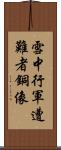 雪中行軍遭
難者銅像